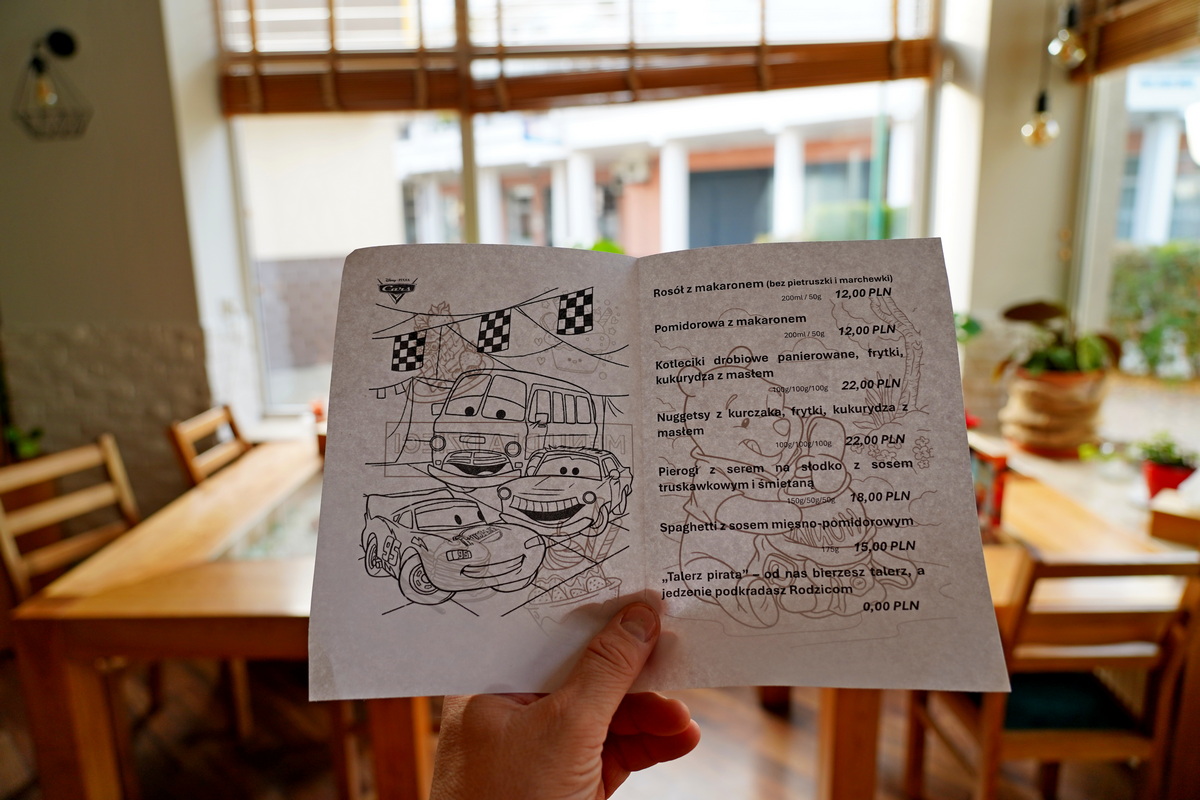 Disney·PIXAR
Cars
95
Rosół z makaronem (bez pietruszki i marchewki)
200ml / 50g 12,00 PLN
Pomidorowa z makaronem
200ml / 50g 12,00 PLN
Kotleciki drobiowe panierowane, frytki,
kukurydza z masłem
100g/100g/100g 22,00 PLN
Nuggetsy z kurczaka, frytki, kukurydza z
masłem
100g/100g/100g 22,00 PLN
Pierogi z serem na słodko z sosem
truskawkowym i śmietaną
150g/50g/50g 18,00 PLN
Spaghetti z sosem mięsno-pomidorowym
175g 15,00 PLN
„Talerz pirata” – od nas bierzesz talerz, a
jedzenie podkradasz Rodzicom
0,00 PLN